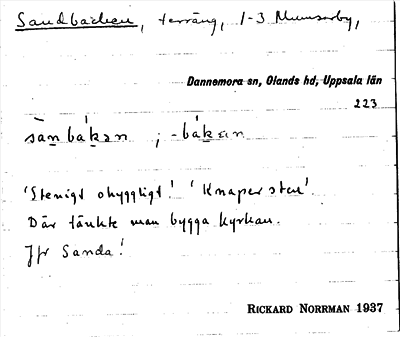 Sandbacken, terräng, 1-3 Mumsarby,
Dannemora sn, Olands hd, Uppsala län
223
sàn bákan ; -bákan
'Stenigt ohyggligt! 'Knapersten'.
Där tänkte man bygga kyrkan.
Jfr Sanda!
RICKARD NORRMAN 1937